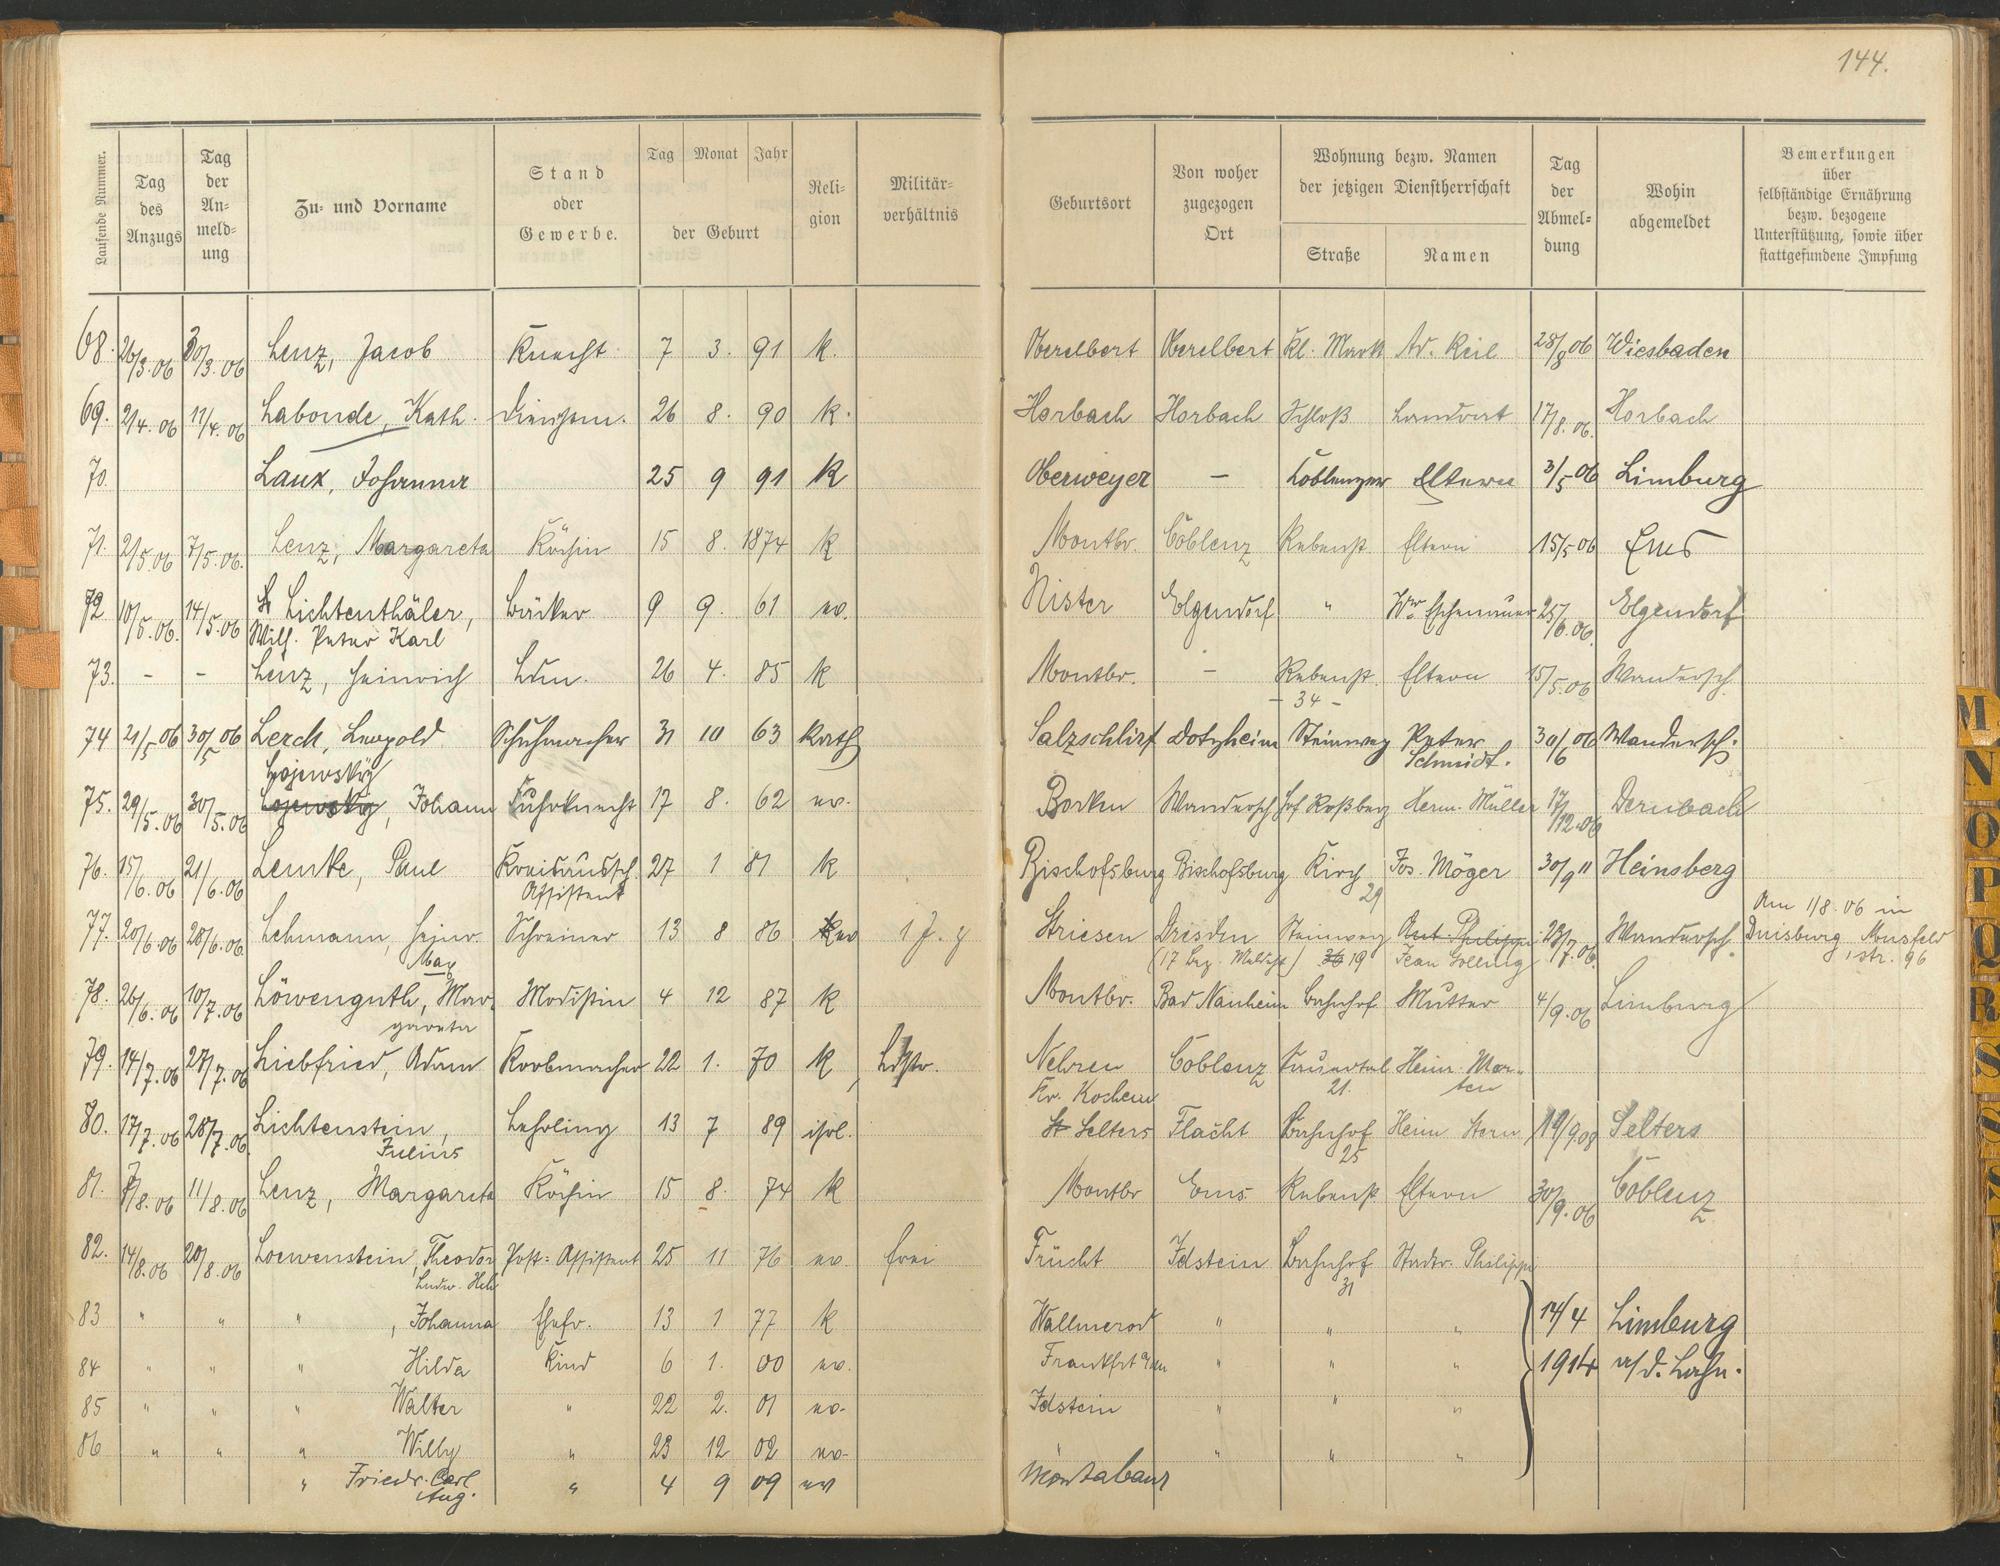 144.
Laufende Nummer.
Tag des Anzugs
Tag der An- meld- ung
Zu- und Vorname
Stand oder Gewerbe.
Tag Monat Jahr
der Geburt
Reli- gion
Militär- verhältnis
Geburtsort
Von woher zugezogen Ort
Wohnung bezw. Namen der jetzigen Dienstherrschaft
Straße Namen
Tag der Abmel- dung
Wohin abgemeldet
Bemerkungen über selbständige Ernährung bezw. bezogene Unterstützung, sowie über stattgefundene Impfung
68. 26/3.06 30/3.06 Lenz, Jacob Knecht 7 3. 91 k. Oberelbert Oberelbert Kl. Markt Ad. Keil 28/8 06 Wiesbaden
69. 2/4.06 11/4.06 Labonde, Kath. 26 8. 90 k. Horbach Horbach Schloß Landrat 17/8.06. Horbach
70. Laux, Johanna 25 9 91 k Oberweyer – Coblenzer Eltern 3/5 06 Limburg
71. 2/5.06 7/5.06. Lenz, Margareta Köchin 15 8. 1874 k Montbr. Coblenz Rebenst. Eltern 15/5 06 Ems
72 10/5.06. 14/5.06 Lichtenthäler, Bäcker 9 9. 61 ev. Nister Elgendorf " Wwe Eschenauer 25/6.06. Elgendorf
Wilh. Peter Karl
73. – – Lenz, Heinrich 26 4. 85 k Montbr. – Rebenst. Eltern 15/5.06 Wandersch.
– 34 –
74 21/5 06 30/5 06 Lerch, Leopold Schuhmacher 31 10 63 kath Salzschlirf Dotzheim Steinweg Peter Schmidt. 30/6 06 Wandersch.
75. 29/5.06 30/5.06 Johann Fuhrknecht 17 8. 62 ev. Borken Wandersch Hof Roßberg Herm. Müller 17/12.06 Dernbach
76. 15/6.06 21/6.06 Lemke, Paul Kreisaussch. Assistent 27 1 81 k Bischofsburg Bischofsburg Kirch 29 Jos. Möger 30/9 11 Heinsberg
77. 20/6.06 28/6.06 Lehmann, Heinr. Max Schreiner 13 8 86 ev Striesen Dresden Steinweg 19 Ant. Philippi 28/7.06. Wandersch. Am 1/8.06 in Duisburg Musfeld str. 96
78. 26/6.06 10/7.06 Löwenguth, Mar- gareta Modistin 4 12 87 k Montbr. Bad Nauheim Bahnhof Mutter 4/9.06 Limburg
79. 14/7.06 27/7.06 Liebfried, Adam Korbmacher 22 1. 70 k Ldstr. Nehren Kr. Kochem Coblenz Sauertal 21. Heinr. Mar- ten
80. 17/7.06 28/7.06 Lichtenstein, Julius Lehrling 13 7 89 isrl. Selters Flacht Bahnhof 25 Heim Stern 19/9 08 Selters
81. 7/8.06 11/8.06 Lenz, Margareta Köchin 15 8. 74 k Montbr Ems Rebenst. Eltern 30/9.06 Coblenz
82. 14/8.06 20/8.06 Loewenstein, Theodor Post-Assistent 25 11 76 ev. frei Frücht Idstein Bahnhof 31 Stadtr. Philippi
83 " " " , Johanna Ehefr. 13 1 77 k Wallmerod " " " 14/4 Limburg
84 " " " Hilda Kind 6 1. 00 ev. Frankfrt a/M " " " 1914 a/d. Lahn.
85 " " " Walter " 22 2. 01 ev. Idstein " " "
86 " " " Willy " 23 12 02 ev. " " "
" Friedr. Carl Aug. " 4 9 09 ev Montabaur
M N O P Q R S